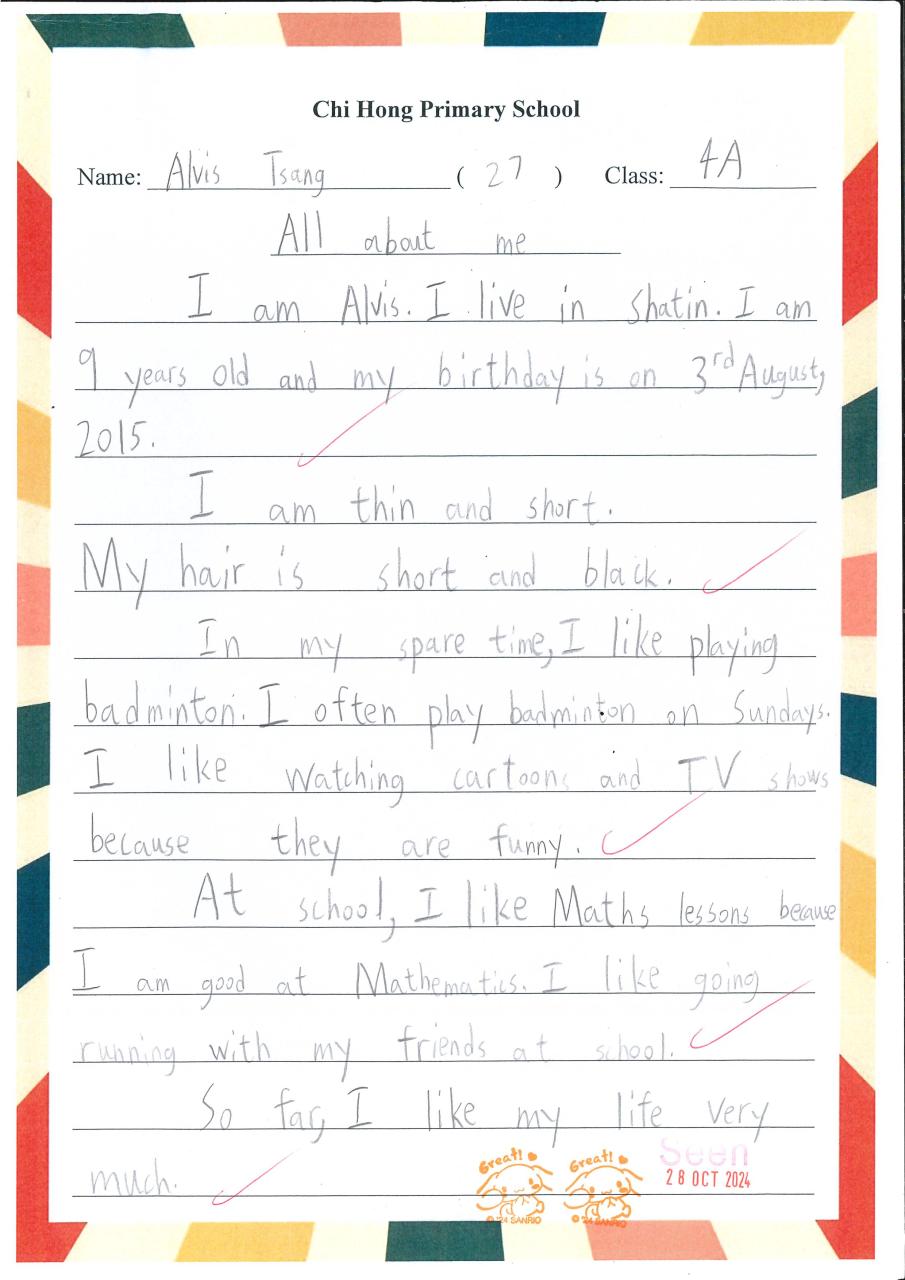 Chi Hong Primary School
Name: Alvis Tsang ( 27 ) Class: 4A
All about me
I am Alvis. I live in Shatin. I am
9 years old and my birthday is on 3rd August,
2015.
I am thin and short.
My hair is short and black.
In my spare time, I like playing
badminton. I often play badminton on Sundays.
I like watching cartoons and TV shows
because they are funny.
At school, I like Maths lessons because
I am good at Mathematics. I like going
running with my friends at school.
So far, I like my life very
much.
Great! Great! Seen
28 OCT 2024
© '24 SANRIO © '24 SANRIO